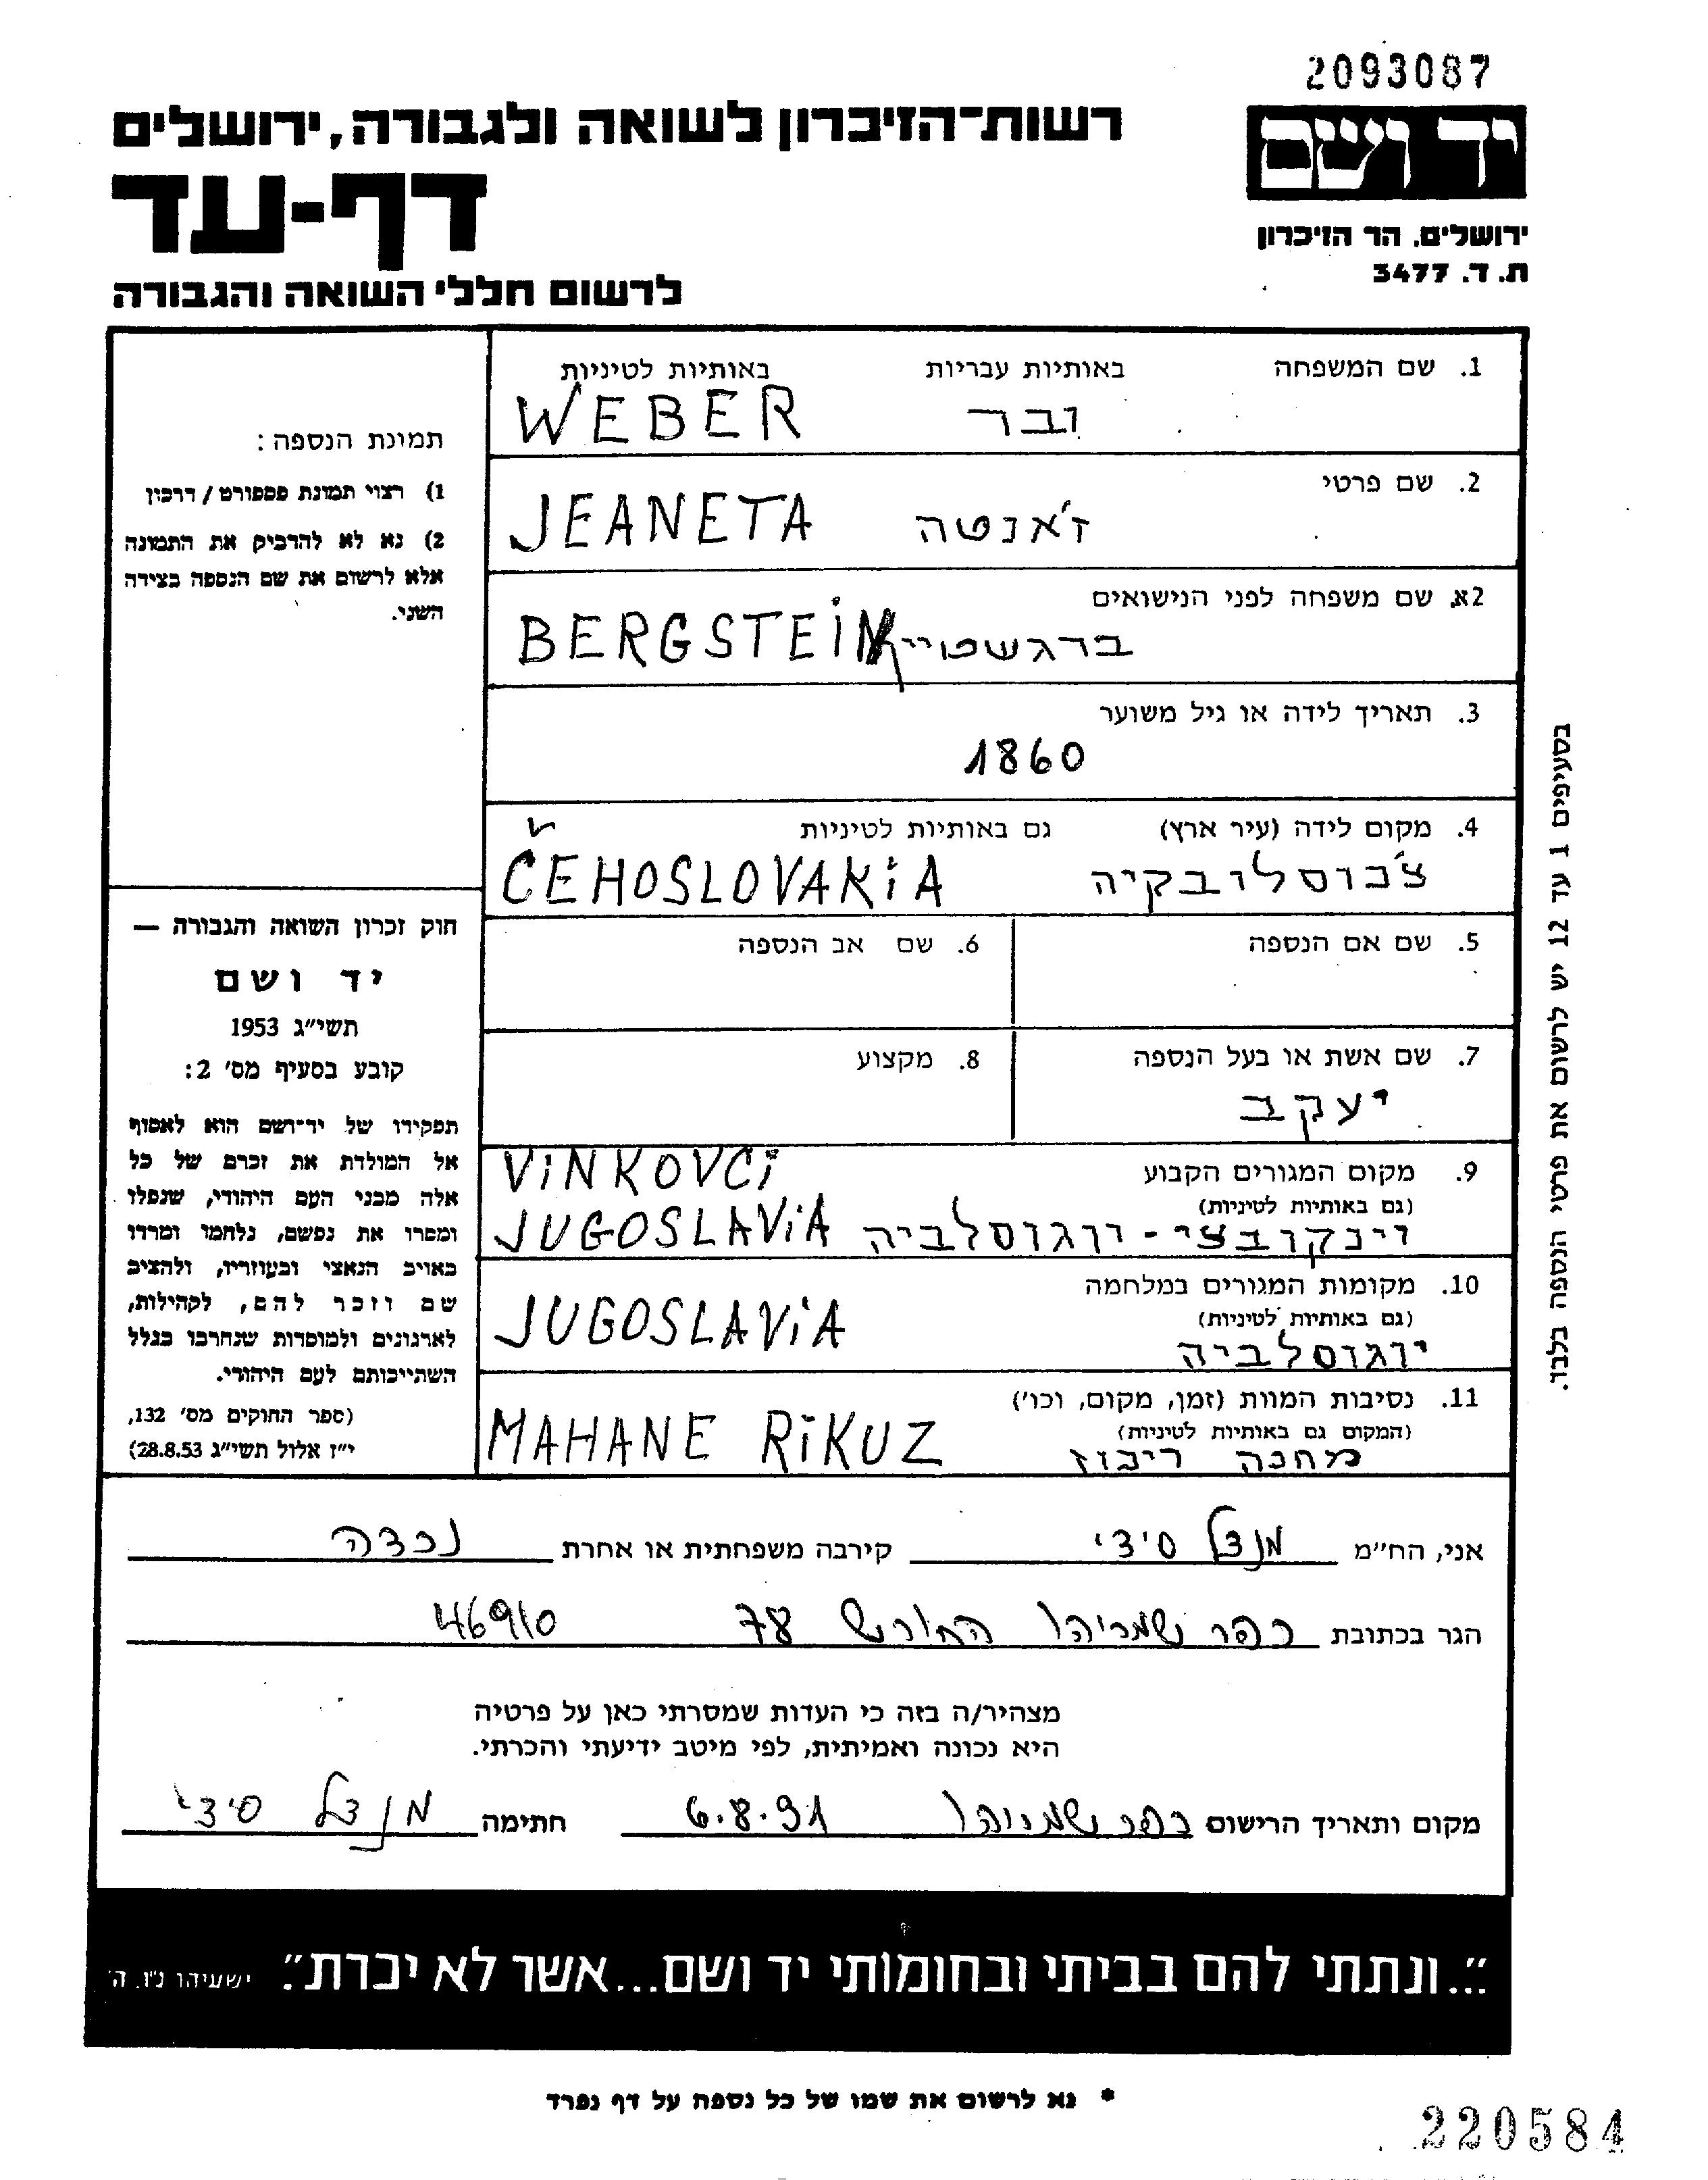 2093087
יד ושם
ירושלים. הר הזיכרון
ת. ד. 3477
רשות־הזיכרון לשואה ולגבורה, ירושלים
דף-עד
לרשום חללי השואה והגבורה
1. שם המשפחה באותיות עבריות באותיות לטיניות
ובר WEBER
2. שם פרטי
ז'אנטה JEANETA
2א. שם משפחה לפני הנישואים
ברגשטיין BERGSTEiN
3. תאריך לידה או גיל משוער
1860
4. מקום לידה (עיר ארץ) גם באותיות לטיניות
צ'כוסלובקיה ČEHOSLOVAKiA
5. שם אם הנספה 6. שם אב הנספה
7. שם אשת או בעל הנספה 8. מקצוע
יעקב
9. מקום המגורים הקבוע VINKOVCi
(גם באותיות לטיניות)
וינקובצי - יוגוסלביה JUGOSLAViA
10. מקומות המגורים במלחמה
(גם באותיות לטיניות) JUGOSLAViA
יוגוסלביה
11. נסיבות המוות (זמן, מקום, וכו')
(המקום גם באותיות לטיניות)
מחנה ריכוז MAHANE RiKUZ
תמונת הנספה:
1) רצוי תמונת פספורט / דרכון
2) נא לא להדביק את התמונה
אלא לרשום את שם הנספה בצידה
השני.
חוק זכרון השואה והגבורה —
יד ושם
תשי"ג 1953
קובע בסעיף מס' 2:
תפקידו של יד־ושם הוא לאסוף
אל המולדת את זכרם של כל
אלה מבני העם היהודי, שנפלו
ומסרו את נפשם, נלחמו ומרדו
באויב הנאצי ובעוזריו, ולהציב
שם וזכר להם, לקהילות,
לארגונים ולמוסדות שנחרבו בגלל
השתייכותם לעם היהודי.
(ספר החוקים מס' 132,
י"ז אלול תשי"ג 28.8.53)
בסעיפים 1 עד 12 יש לרשום את פרטי הנספה בלבד.
אני, הח"מ מנדל סידי קירבה משפחתית או אחרת נכדה
הגר בכתובת כפר שמריהו החורש 78 46910
מצהיר/ה בזה כי העדות שמסרתי כאן על פרטיה
היא נכונה ואמיתית, לפי מיטב ידיעתי והכרתי.
מקום ותאריך הרישום כפר שמריהו 6.8.91 חתימה מנדל סידי
"...ונתתי להם בביתי ובחומותי יד ושם...אשר לא יכרת". ישעיהו נ"ו. ה'
* נא לרשום את שמו של כל נספה על דף נפרד
220584